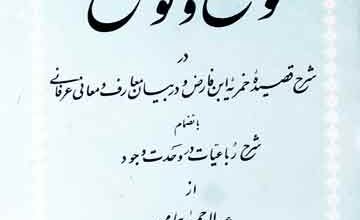 در
شرح قصیدهٔ خمریه ابن فارض و در بیان معارف و معانی عرفانی
بانضمام
شرح رباعیات در وحدت وجود
از